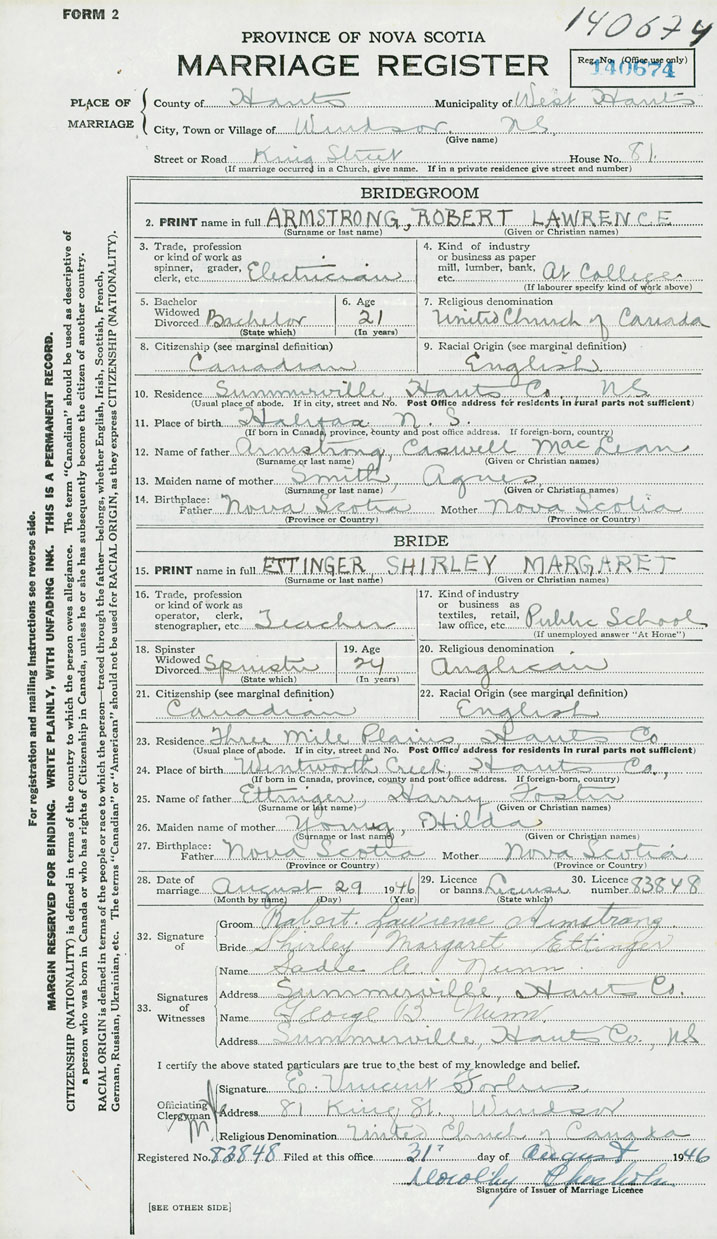 FORM 2
140674
PROVINCE OF NOVA SCOTIA
MARRIAGE REGISTER
Reg. No. (Office use only)
140674
PLACE OF MARRIAGE
County of Hants Municipality of West Hants
City, Town or Village of Windsor, N.S.
(Give name)
Street or Road King Street House No. 81
(If marriage occurred in a Church, give name. If in a private residence give street and number)
BRIDEGROOM
2. PRINT name in full ARMSTRONG, ROBERT LAWRENCE
(Surname or last name) (Given or Christian names)
3. Trade, profession or kind of work as spinner, grader, clerk, etc. Electrician
4. Kind of industry or business as paper mill, lumber, bank, etc. At College
(If labourer specify kind of work above)
5. Bachelor Widowed Divorced Bachelor
(State which)
6. Age 21
(In years)
7. Religious denomination United Church of Canada
8. Citizenship (see marginal definition) Canadian
9. Racial Origin (see marginal definition) English
10. Residence Summerville, Hants Co., NS
(Usual place of abode. If in city, street and No. Post Office address for residents in rural parts not sufficient)
11. Place of birth Halifax N.S.
(If born in Canada, province, county and post office address. If foreign-born, country)
12. Name of father Armstrong, Caswell MacLean
(Surname or last name) (Given or Christian names)
13. Maiden name of mother Smith, Agnes
(Surname or last name) (Given or Christian names)
14. Birthplace: Father Nova Scotia Mother Nova Scotia
(Province or Country) (Province or Country)
BRIDE
15. PRINT name in full ETTINGER SHIRLEY MARGARET
(Surname or last name) (Given or Christian names)
16. Trade, profession or kind of work as operator, clerk, stenographer, etc Teacher
17. Kind of industry or business as textiles, retail, law office, etc. Public School
(If unemployed answer "At Home")
18. Spinster Widowed Divorced Spinster
(State which)
19. Age 24
(In years)
20. Religious denomination Anglican
21. Citizenship (see marginal definition) Canadian
22. Racial Origin (see marginal definition) English
23. Residence Three Mile Plains, Hants Co.
(Usual place of abode. If in city, street and No. Post Office address for residents in rural parts not sufficient)
24. Place of birth Wentworth Creek, Hants Co.,
(If born in Canada, province, county and post office address. If foreign-born, country)
25. Name of father Ettinger, Harry Foster
(Surname or last name) (Given or Christian names)
26. Maiden name of mother Young, Hilda
(Surname or last name) (Given or Christian names)
27. Birthplace: Father Nova Scotia Mother Nova Scotia
(Province or Country) (Province or Country)
28. Date of marriage August 29 1946
(Month by name) (Day) (Year)
29. Licence or banns License
(State which)
30. Licence number 83848
32. Signature of
Groom Robert Lawrence Armstrong
Bride Shirley Margaret Ettinger
33. Signatures of Witnesses
Name Sadie A. Nunn
Address Summerville, Hants Co.
Name George B. Nunn
Address Summerville, Hants Co., NS
I certify the above stated particulars are true to the best of my knowledge and belief.
Officiating Clergyman
Signature E. Vincent
Address 81 King St. Windsor
Religious Denomination United Church of Canada
Registered No. 83848 Filed at this office 31st day of August 1946
Dorothy Chisholm
Signature of Issuer of Marriage Licence
[SEE OTHER SIDE]
For registration and mailing instructions see reverse side.
MARGIN RESERVED FOR BINDING. WRITE PLAINLY, WITH UNFADING INK. THIS IS A PERMANENT RECORD.
CITIZENSHIP (NATIONALITY) is defined in terms of the country to which the person owes allegiance. The term "Canadian" should be used as descriptive of
a person who was born in Canada or who has rights of Citizenship in Canada, unless he or she has subsequently become the citizen of another country.
RACIAL ORIGIN is defined in terms of the people or race to which the person—traced through the father—belongs, whether English, Irish, Scottish, French,
German, Russian, Ukrainian, etc. The terms "Canadian" or "American" should not be used for RACIAL ORIGIN, as they express CITIZENSHIP (NATIONALITY).